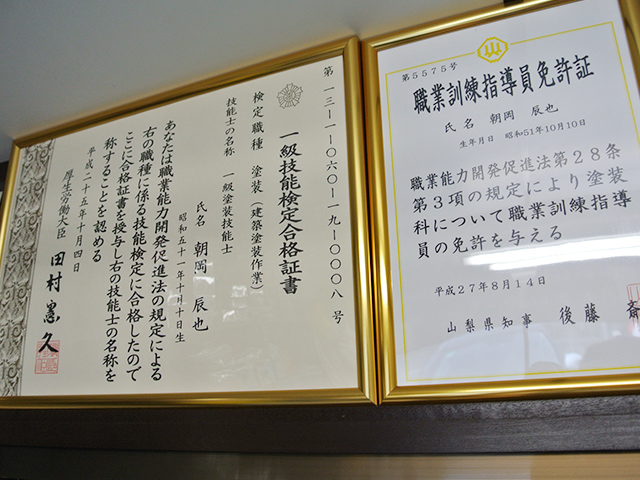 第一三―1―〇六〇―一九―〇〇〇〇八号
一級技能検定合格証書
検定職種 塗装(建築塗装作業)
技能士の名称 一級塗装技能士
氏名 朝岡 辰也
昭和五十一年十月十日生
あなたは職業能力開発促進法の規定による
右の職種に係る技能検定に合格したので
ここに合格証書を授与し右の技能士の名称を
称することを認める
平成二十五年十月四日
厚生労働大臣 田村憲久
第5575号
職業訓練指導員免許証
氏名 朝岡 辰也
生年月日 昭和51年10月10日
職業能力開発促進法第28条
第3項の規定により塗装
科について職業訓練指導
員の免許を与える
平成27年8月14日
山梨県知事 後藤 斎